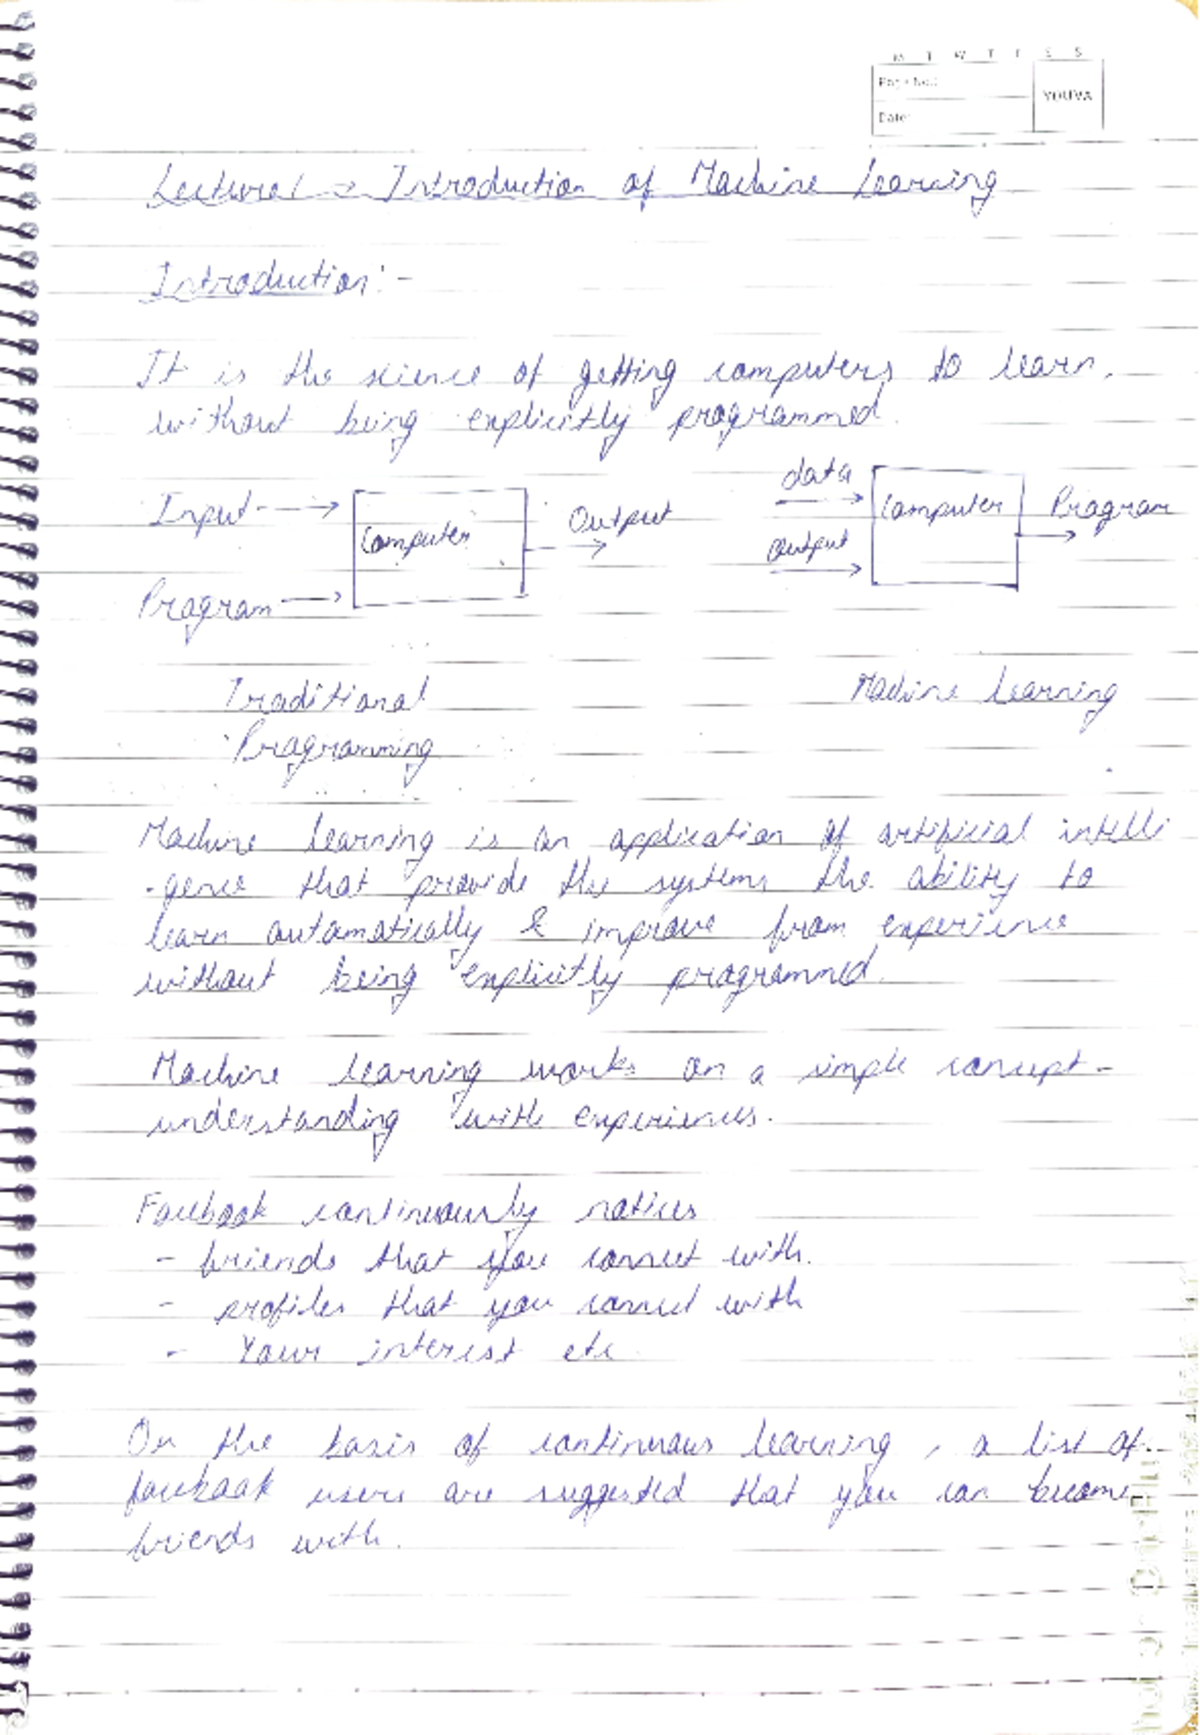 M T W T F S S
Page No.:
YOUVA
Date:
Lecture1 => Introduction of Machine Learning
Introduction:-
It is the science of getting computers to learn,
without being explicitly programmed.
Input → Computer → Output
Program →
data → Computer → Program
output →
Traditional
Programming
Machine Learning
Machine learning is an application of artificial intelli
-gence that provide the systems the ability to
learn automatically & improve from experience
without being explicitly programmed.
Machine learning works on a simple concept-
understanding with experiences.
Facebook continuously notices
- friends that you connect with.
- profiles that you connect with
- Your interest etc.
On the basis of continuous learning, a list of
facebook users are suggested that you can become
friends with.